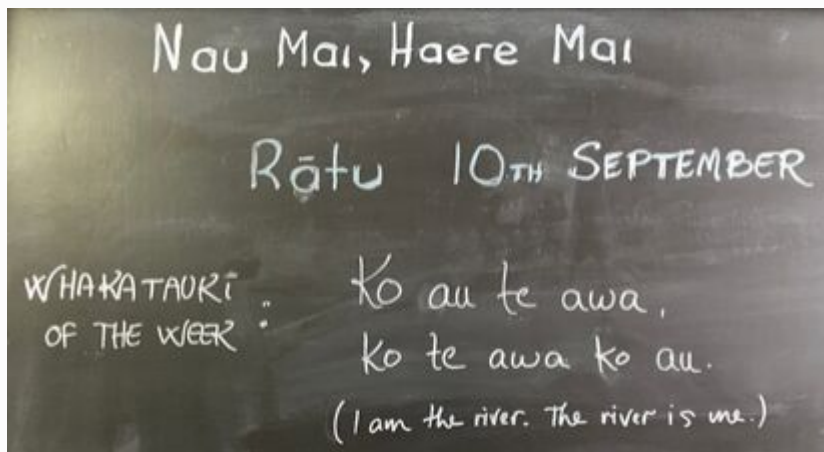 Nau Mai, Haere Mai
Rātu 10TH SEPTEMBER
WHAKATAUKĪ OF THE WEEK :
Ko au te awa,
ko te awa ko au.
(I am the river. The river is me.)